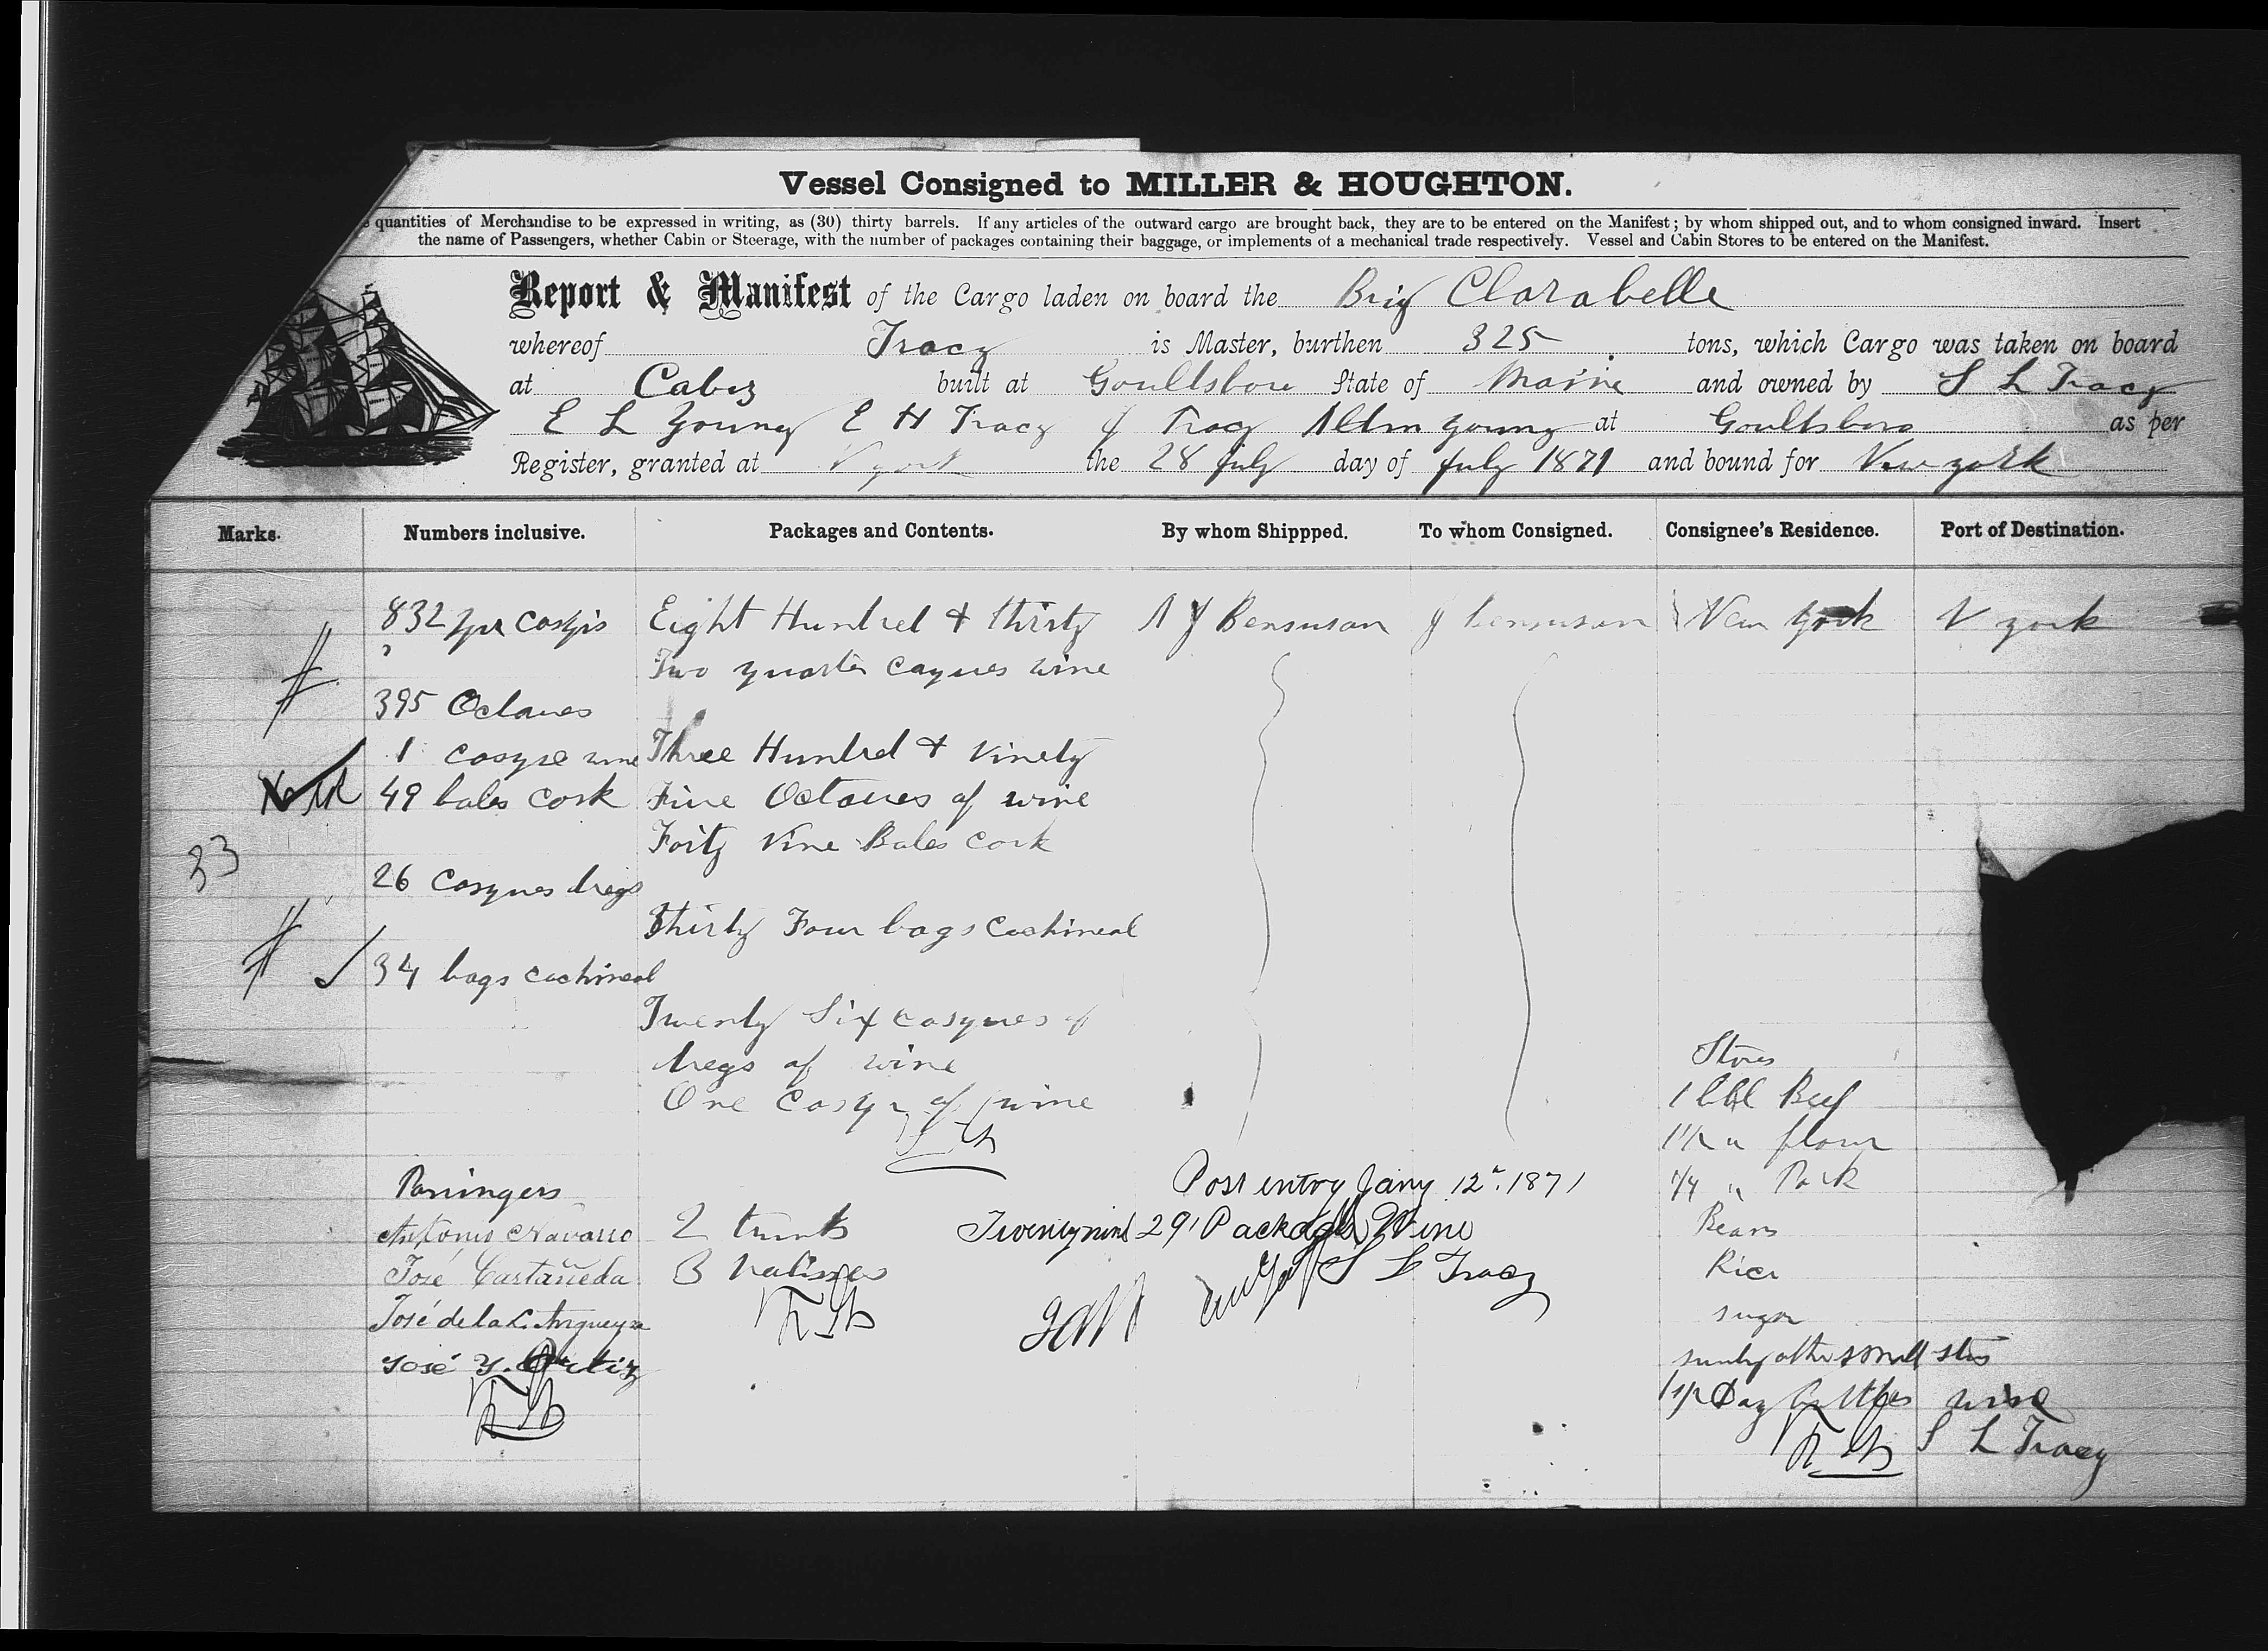 Vessel Consigned to MILLER & HOUGHTON.
quantities of Merchandise to be expressed in writing, as (30) thirty barrels. If any articles of the outward cargo are brought back, they are to be entered on the Manifest; by whom shipped out, and to whom consigned inward. Insert
the name of Passengers, whether Cabin or Steerage, with the number of packages containing their baggage, or implements of a mechanical trade respectively. Vessel and Cabin Stores to be entered on the Manifest.
Report & Manifest of the Cargo laden on board the Brig Clarabelle
whereof Tracy is Master, burthen 325 tons, which Cargo was taken on board
at Cabiz built at Goultsboro State of Maine and owned by S L Tracy
E L Young E H Tracy J Tracy Young at Goultsboro as per
Register, granted at N york the 28 July day of July 1871 and bound for New york
Marks. Numbers inclusive. Packages and Contents. By whom Shippped. To whom Consigned. Consignee's Residence. Port of Destination.
832 Eight Hundred & thirty A J Bensusan J Bensusan New York N york
Two quarter Caques wine
395 Octaves
1 Casque wine Three Hundred & Ninety
49 bales Cork Five Octaves of wine
Forty Nine Bales Cork
33
26 Casques dregs
Thirty Four bags Cochineal
34 bags Cochineal
Twenty Six casques of
dregs of wine
One Casque of wine
Stores
1 bbl Beef
1 1/2 " flour
1/4 " Pork
Beans
Rice
sugar
sundry other small stos
wine
S L Tracy
Passingers
Antonio Navarro 2 trunks
José Castañeda 3 valisses
José de la C.
José Y. Ortiz
Post entry Jany 12" 1871
Twentynine 29 Packages Wine
S L Tracy